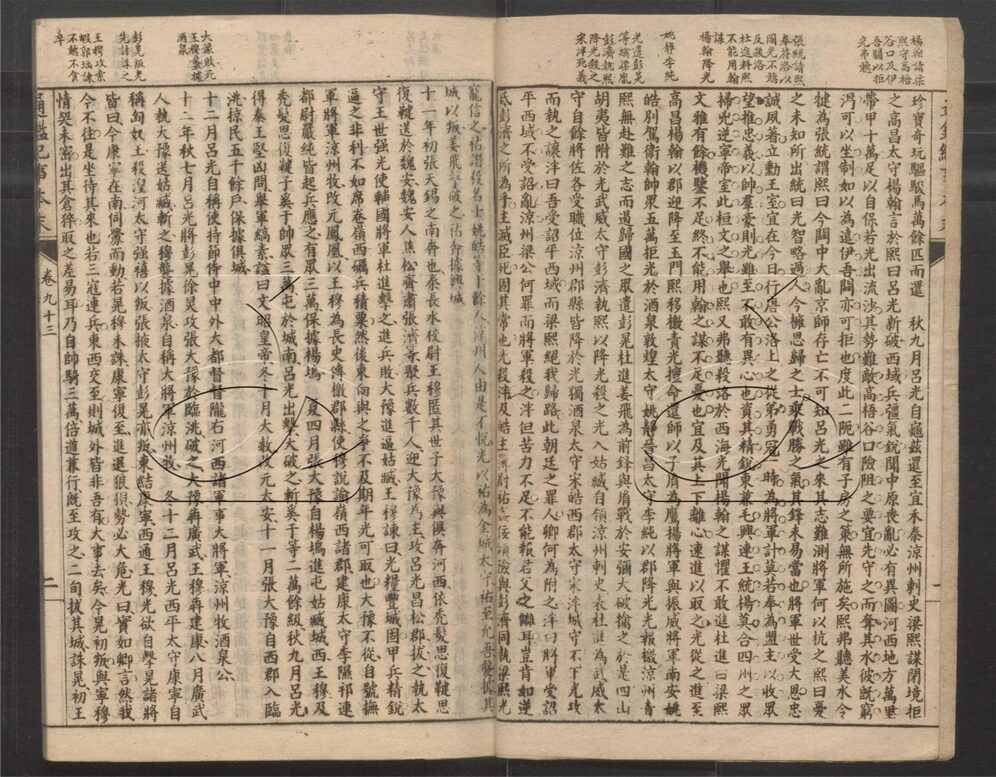 楊翰請梁
熙守高梧
谷口及伊
吾關以拒
光弗聽
張統請熙
奉苻洛以
圖光不聽
反殺洛
杜進料熙
不能用翰
謀
楊翰降光
姚靜李純
光遣彭晃
等擒梁胤
彭濟執熙
降光殺之
宋泮死義
珍寶奇玩驅駿馬萬餘匹而還　秋九月呂光自龜茲還至宜禾秦涼州刺史梁熙謀閉境拒
之高昌太守楊翰言於熙曰呂光新破西域兵彊氣銳聞中原喪亂必有異圖河西地方萬里
帶甲十萬足以自保若光出流沙其勢難敵高梧谷口險阻之要宜先守之而奪其水彼既窮
渴可以坐制如以為遠伊吾關亦可拒也度此二阨雖有子房之策無所施矣熙弗聽美水令
犍為張統謂熙曰今關中大亂京師存亡不可知呂光之來其志難測將軍何以抗之熙曰憂
之未知所出統曰光智略過人今擁思歸之士乘戰勝之氣其鋒未易當也將軍世受大恩忠
誠夙著立勳王室宜在今日行唐公洛上之從弟勇冠一時為將軍計莫若奉為盟主以收眾
望推忠義以帥羣豪則光雖至不敢有異心也資其精銳東兼毛興連王統楊璧合四州之眾
掃兇逆寧帝室此桓文之舉也熙又弗聽殺洛於西海光聞楊翰之謀懼不敢進杜進曰梁熙
文雅有餘機鑒不足終不能用翰之謀不足憂也宜及其上下離心速進以取之光從之進至
高昌楊翰以郡迎降至玉門熙移檄責光擅命還師以子胤為鷹揚將軍與振威將軍南安姚
皓別駕衛翰帥眾五萬拒光於酒泉敦煌太守姚靜晉昌太守李純以郡降光光報檄涼州責
熙無赴難之志而遏歸國之眾遣彭晃杜進姜飛為前鋒與胤戰於安彌大破擒之於是四山
胡夷皆附於光武威太守彭濟執熙以降光殺之光入姑臧自領涼州刺史表杜進為武威太
守自餘將佐各受職位涼州郡縣皆降於光獨酒泉太守宋皓西郡太守宋泮城守不下光攻
而執之讓泮曰吾受詔平西域而梁熙絕我歸路此朝廷之罪人卿何為附之泮曰將軍受詔
平西域不受詔亂涼州梁公何罪而將軍殺之泮但苦力不足不能報君父之讎耳豈肯如逆
氐彭濟之所為乎主滅臣死固其常也光殺泮及皓主簿尉祐
卷九十三
寵信之祐譖殺名士姚皓等十餘人涼州人由是不悅光以祐為金城太守祐至允吾襲據其
城以叛姜飛擊破之祐奔據興城
十一年初張天錫之南奔也秦長水校尉王穆匿其世子大豫與俱奔河西依禿髮思復鞬思
復鞬送於魏安魏安人焦松齊肅張濟等聚兵數千人迎大豫為主攻呂光昌松郡拔之執太
守王世强光使輔國將軍杜進擊之進兵敗大豫進逼姑臧王穆諫曰光糧豐城固甲兵精銳
逼之非利不如席卷嶺西礪兵積粟然後東向與之爭不及期年光可取也大豫不從自號撫
軍將軍涼州牧改元鳳凰以王穆為長史傳檄郡縣使穆說諭嶺西諸郡建康太守李隰祁連
都尉嚴純皆起兵應之有眾三萬保據楊塢　夏四月張大豫自楊塢進屯姑臧城西王穆及
禿髮思復鞬子奚于帥眾三萬屯於城南呂光出擊大破之斬奚于等二萬餘級秋九月呂光
得秦王堅凶問舉軍縞素諡曰文昭皇帝冬十月大赦改元太安十一月張大豫自西郡入臨
洮掠民五千餘戶保據俱城
十二月呂光自稱使持節侍中中外大都督督隴右河西諸軍事大將軍涼州牧酒泉公
十二年秋七月呂光將彭晃徐炅攻張大豫於臨洮破之大豫奔廣武王穆奔建康八月廣武
人執大豫送姑臧斬之穆襲據酒泉自稱大將軍涼州牧　冬十二月呂光西平太守康寧自
稱匈奴王殺湟河太守强禧以叛張掖太守彭晃亦叛東結康寧西通王穆光欲自擊晃諸將
皆曰今康寧在南伺釁而動若晃穆未誅康寧復至進退狼狽勢必大危光曰實如卿言然我
今不往是坐待其來也若三寇連兵東西交至則城外皆非吾有大事去矣今晃初叛與寧穆
情契未密出其倉猝取之差易耳乃自帥騎三萬倍道兼行既至攻之二旬拔其城誅晃初王
大豫敗死
王穆襲據
酒泉
彭晃叛光
先討誅之
王穆攻索
嘏郭瑀諫
不聽不食
卒
二